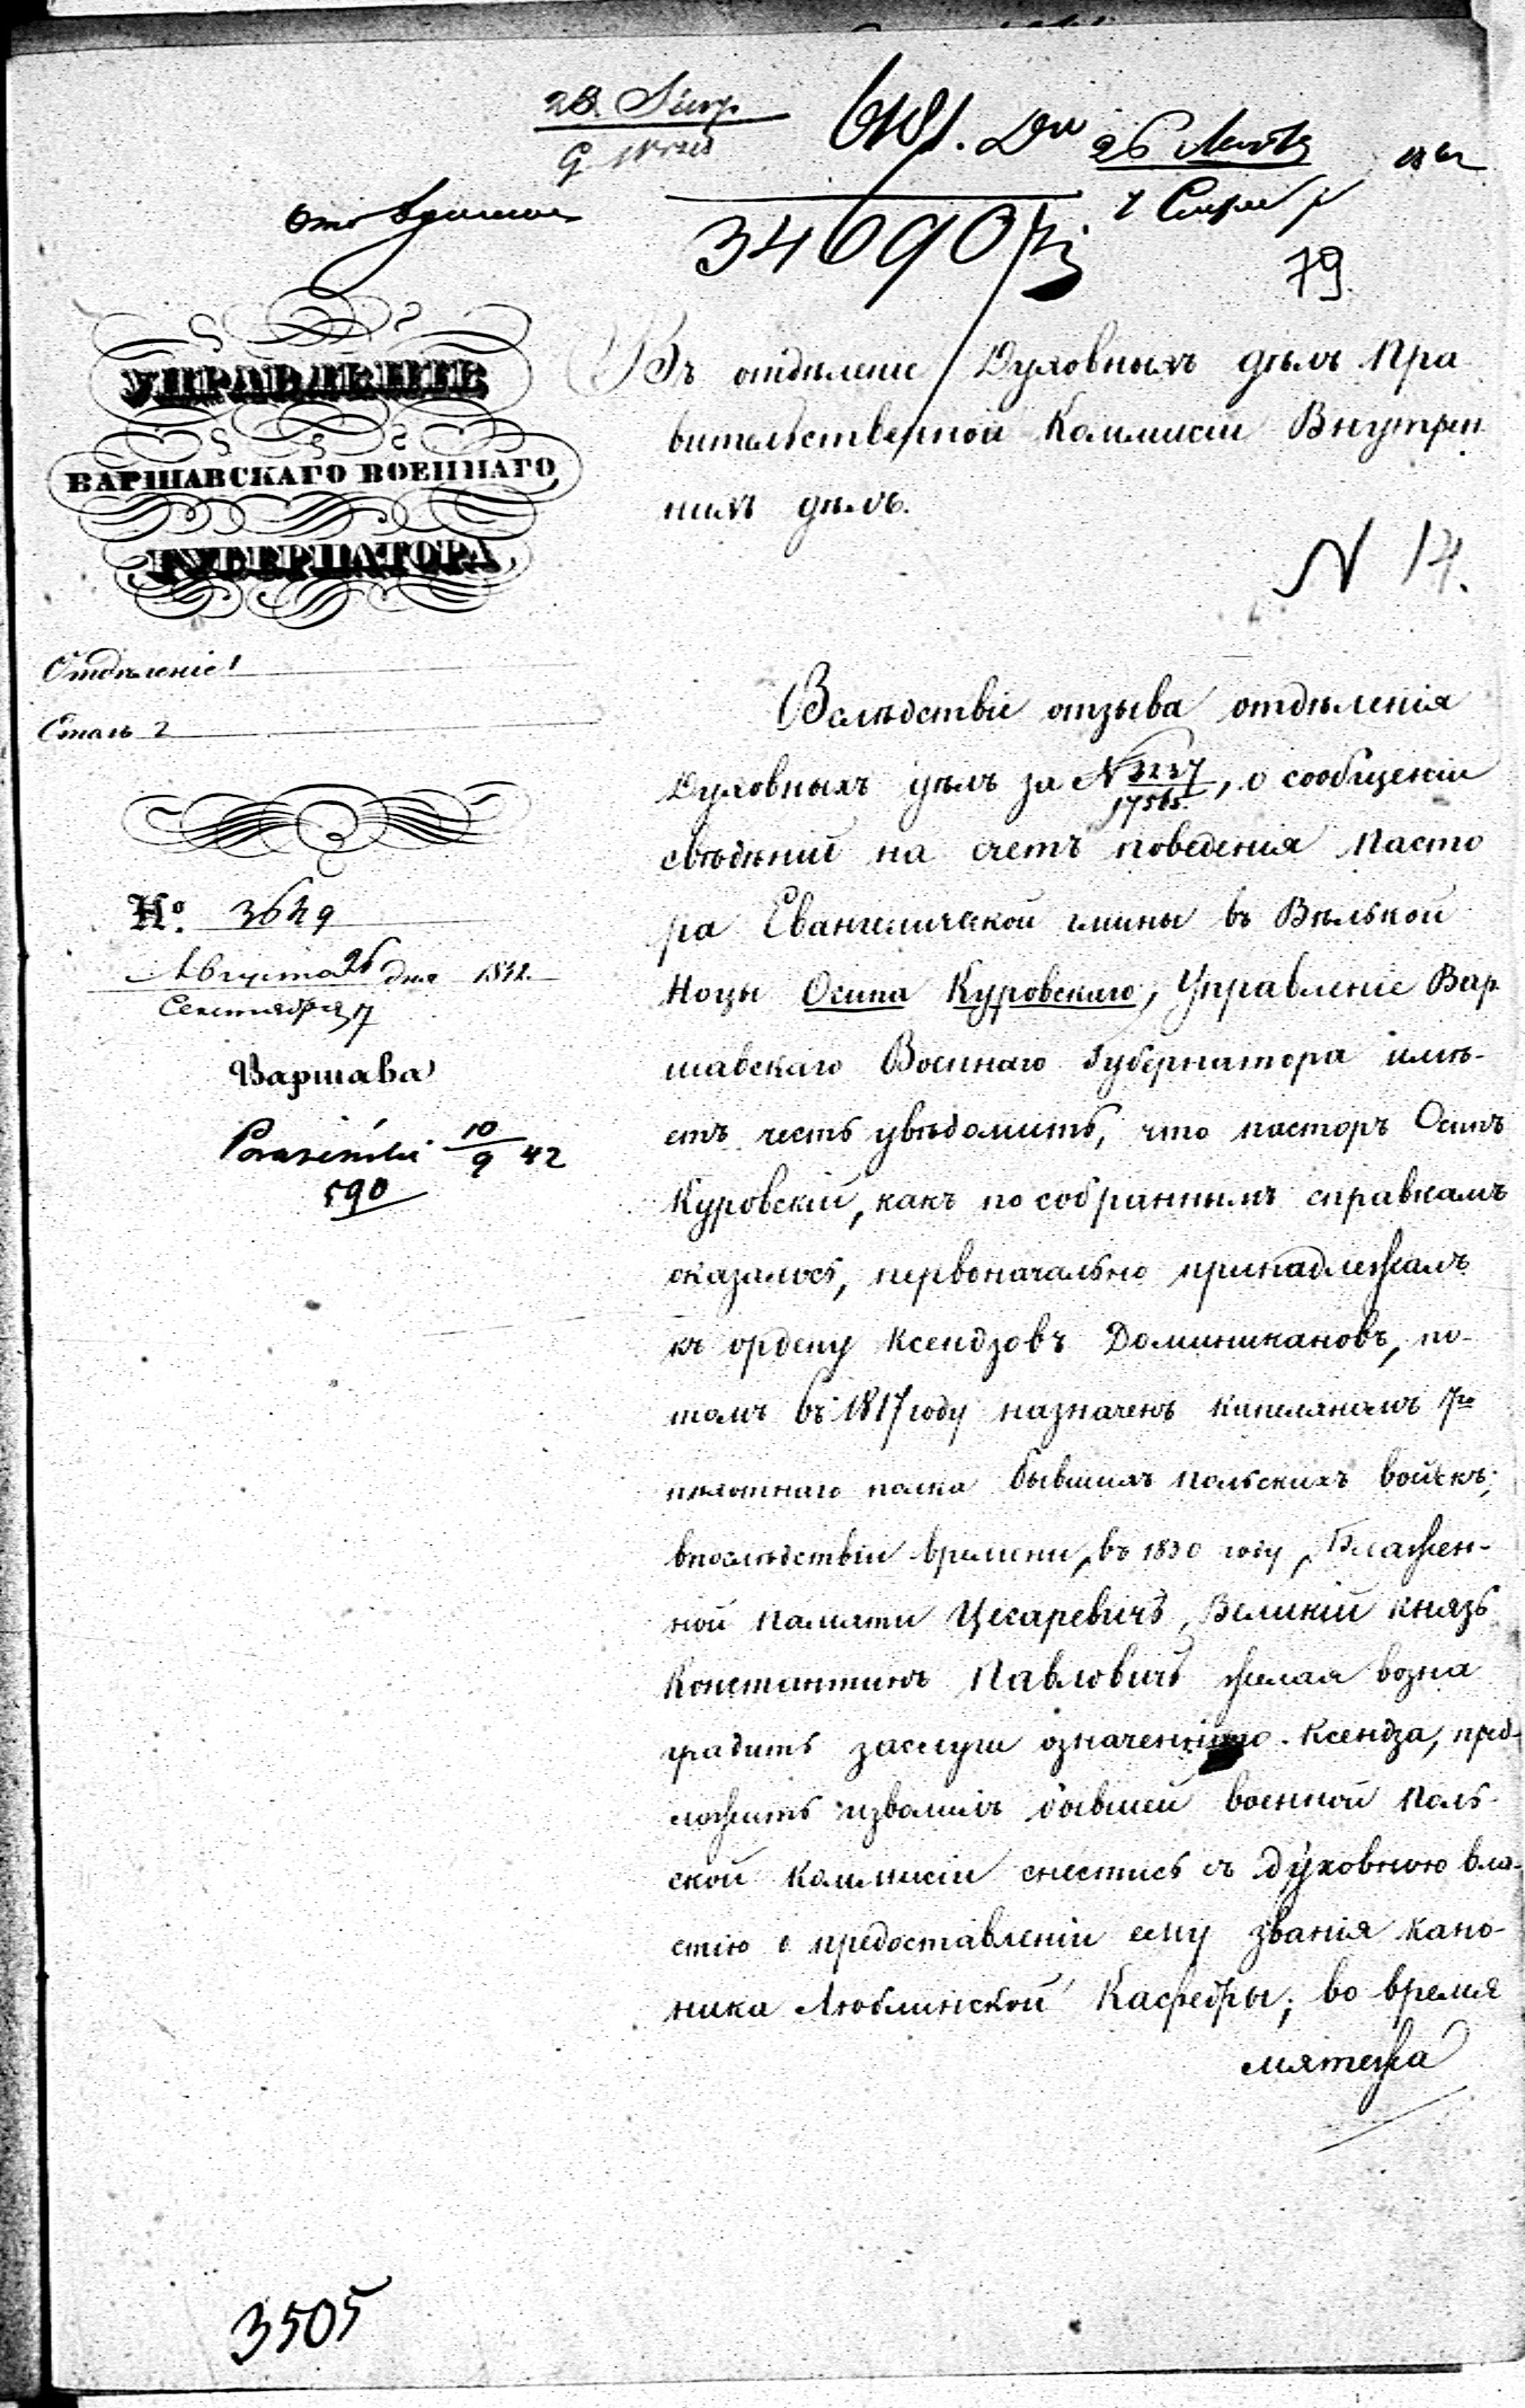 79
УПРАВЛЕНІЕ
ВАРШАВСКАГО ВОЕННАГО
ГУБЕРНАТОРА
Отдѣленіе 1
Столъ 2
№ 3649
Августа 26 дня 1842.
Сентября 7
Варшава
10/9 42
590
Въ отдѣленіе Духовныхъ дѣлъ Пра
вительственной Коммисіи Внутрен
нихъ дѣлъ.
N 14.
Вслѣдствіе отзыва отдѣленія
Духовныхъ дѣлъ за N 3237/17565, о сообщеніи
свѣдѣній на счетъ поведенія Пасто
ра Евангелической гмины въ Вѣлькой
Ноцы Осипа Куровскаго, Управленіе Вар
шавскаго Военнаго Губернатора имѣ-
етъ честь увѣдомить, что пасторъ Осипъ
Куровскій, какъ по собраннымъ справкамъ
оказалось, первоначально принадлежалъ
къ ордену Ксендзовъ Доминикановъ, по-
томъ въ 1817 году назначенъ капеляномъ 7го
пѣхотнаго полка бывшихъ Польскихъ войскъ;
впослѣдствіи времени, въ 1830 году, Блажен-
ной памяти Цесаревичь, Великій Князь
Константинъ Павловичь желая возна
градить заслуги означеннаго Ксендза, пред-
ложить изволилъ бывшей военной Поль-
ской Коммисіи снестись съ духовною вла-
стію о предоставленіи ему званія кано-
ника Люблинской Кафедры; во время
мятежа
3505